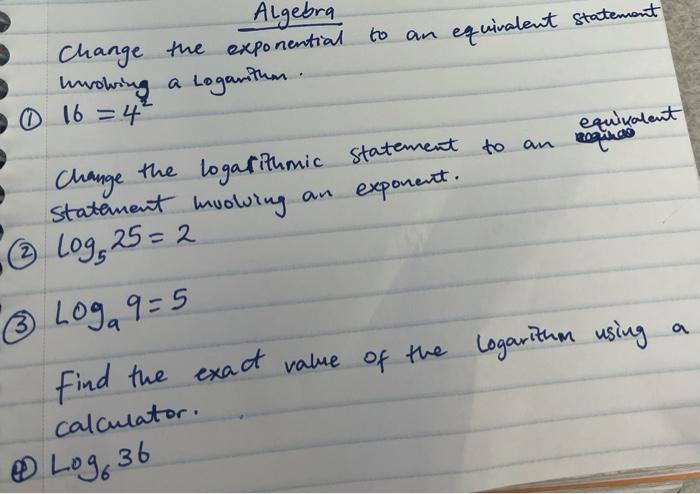 Algebra
Change the exponential to an equivalent statement
involving a Logarithm.
① 16 = 4²
equivalent
Change the logarithmic statement to an
statement involving an exponent.
② Log₅ 25 = 2
③ Logₐ 9 = 5
Find the exact value of the Logarithm using a
calculator.
④ Log₆ 36